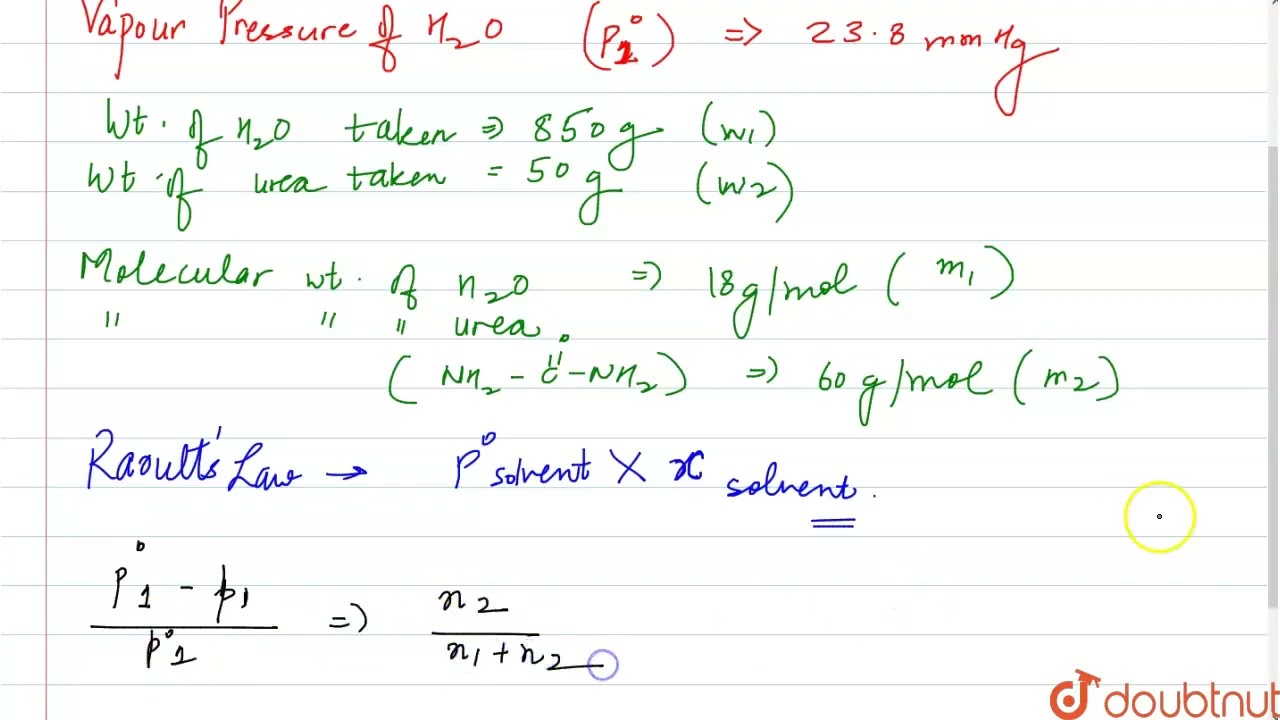 Vapour Pressure of H2O (P1°) => 23.8 mm Hg
Wt. of H2O taken => 850 g (w1)
Wt. of urea taken = 50 g (w2)
Molecular wt. of H2O => 18 g/mol (m1)
" " " urea
O
(NH2-C-NH2) => 60 g/mol (m2)
Raoult's Law → P° solvent X x solvent.
P°1 - p1 / P°1 => n2 / n1 + n2
doubtnut